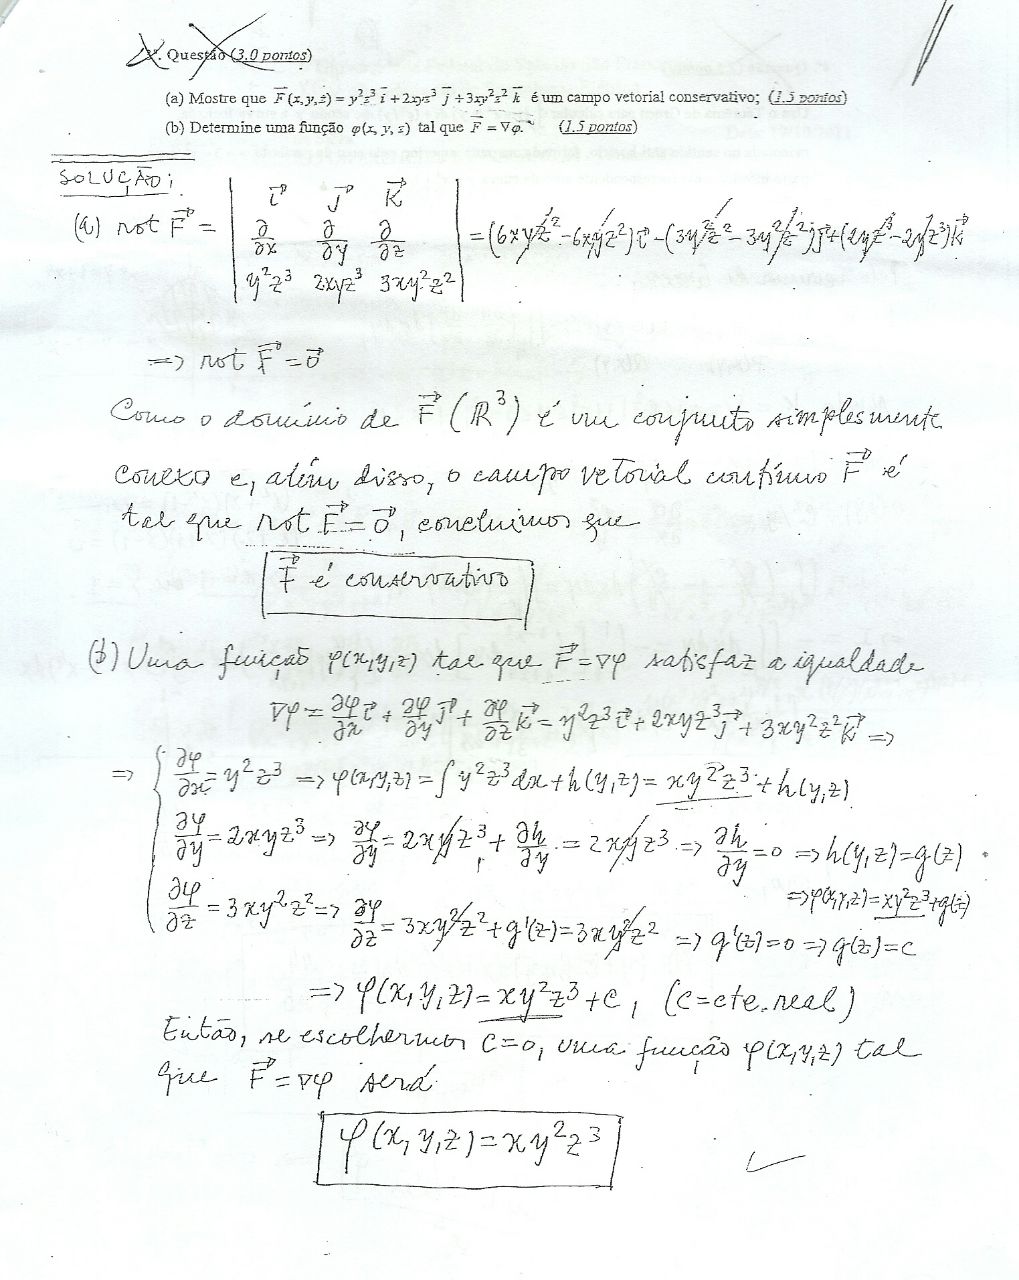 3ª. Questão (3.0 pontos)
(a) Mostre que F⃗(x,y,z) = y²z³ i⃗ + 2xyz³ j⃗ + 3xy²z² k⃗ é um campo vetorial conservativo; (1.5 pontos)
(b) Determine uma função φ(x, y, z) tal que F⃗ = ∇φ. (1.5 pontos)
SOLUÇÃO:
(a) rot F⃗ = | i⃗ j⃗ k⃗ ; ∂/∂x ∂/∂y ∂/∂z ; y²z³ 2xyz³ 3xy²z² | = (6xyz² - 6xyz²)i⃗ - (3y²z² - 3y²z²)j⃗ + (2yz³ - 2yz³)k⃗
=> rot F⃗ = 0⃗
Como o domínio de F⃗ (ℝ³) é um conjunto simplesmente
conexo e, além disso, o campo vetorial contínuo F⃗ é
tal que rot F⃗ = 0⃗, concluimos que
F⃗ é conservativo
(b) Uma função φ(x,y,z) tal que F⃗ = ∇φ satisfaz a igualdade
∇φ = ∂φ/∂x i⃗ + ∂φ/∂y j⃗ + ∂φ/∂z k⃗ = y²z³ i⃗ + 2xyz³ j⃗ + 3xy²z² k⃗ =>
=> { ∂φ/∂x = y²z³ => φ(x,y,z) = ∫ y²z³ dx + h(y,z) = xy²z³ + h(y,z)
∂φ/∂y = 2xyz³ => ∂φ/∂y = 2xyz³ + ∂h/∂y = 2xyz³ => ∂h/∂y = 0 => h(y,z) = g(z)
=> φ(x,y,z) = xy²z³ + g(z)
∂φ/∂z = 3xy²z² => ∂φ/∂z = 3xy²z² + g'(z) = 3xy²z² => g'(z) = 0 => g(z) = c
=> φ(x,y,z) = xy²z³ + c, (c = cte. real)
Então, se escolhermos c = 0, uma função φ(x,y,z) tal
que F⃗ = ∇φ será
φ(x,y,z) = xy²z³